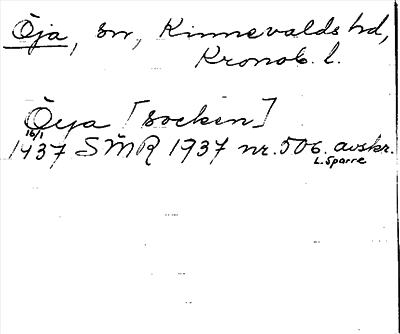 Öja, sn, Kinnevalds hd,
Kronob. l.
Öya [socken]
16/1
1437 SMR 1937 nr. 506. avskr.
L. Sparre